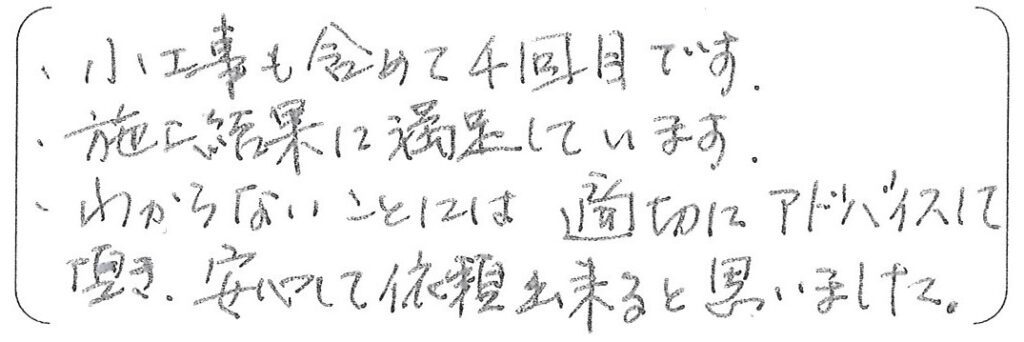 ・小工事も含めて4回目です.
・施工結果に満足しています.
・わからないことには適切にアドバイスして
頂き、安心して依頼出来ると思いました。